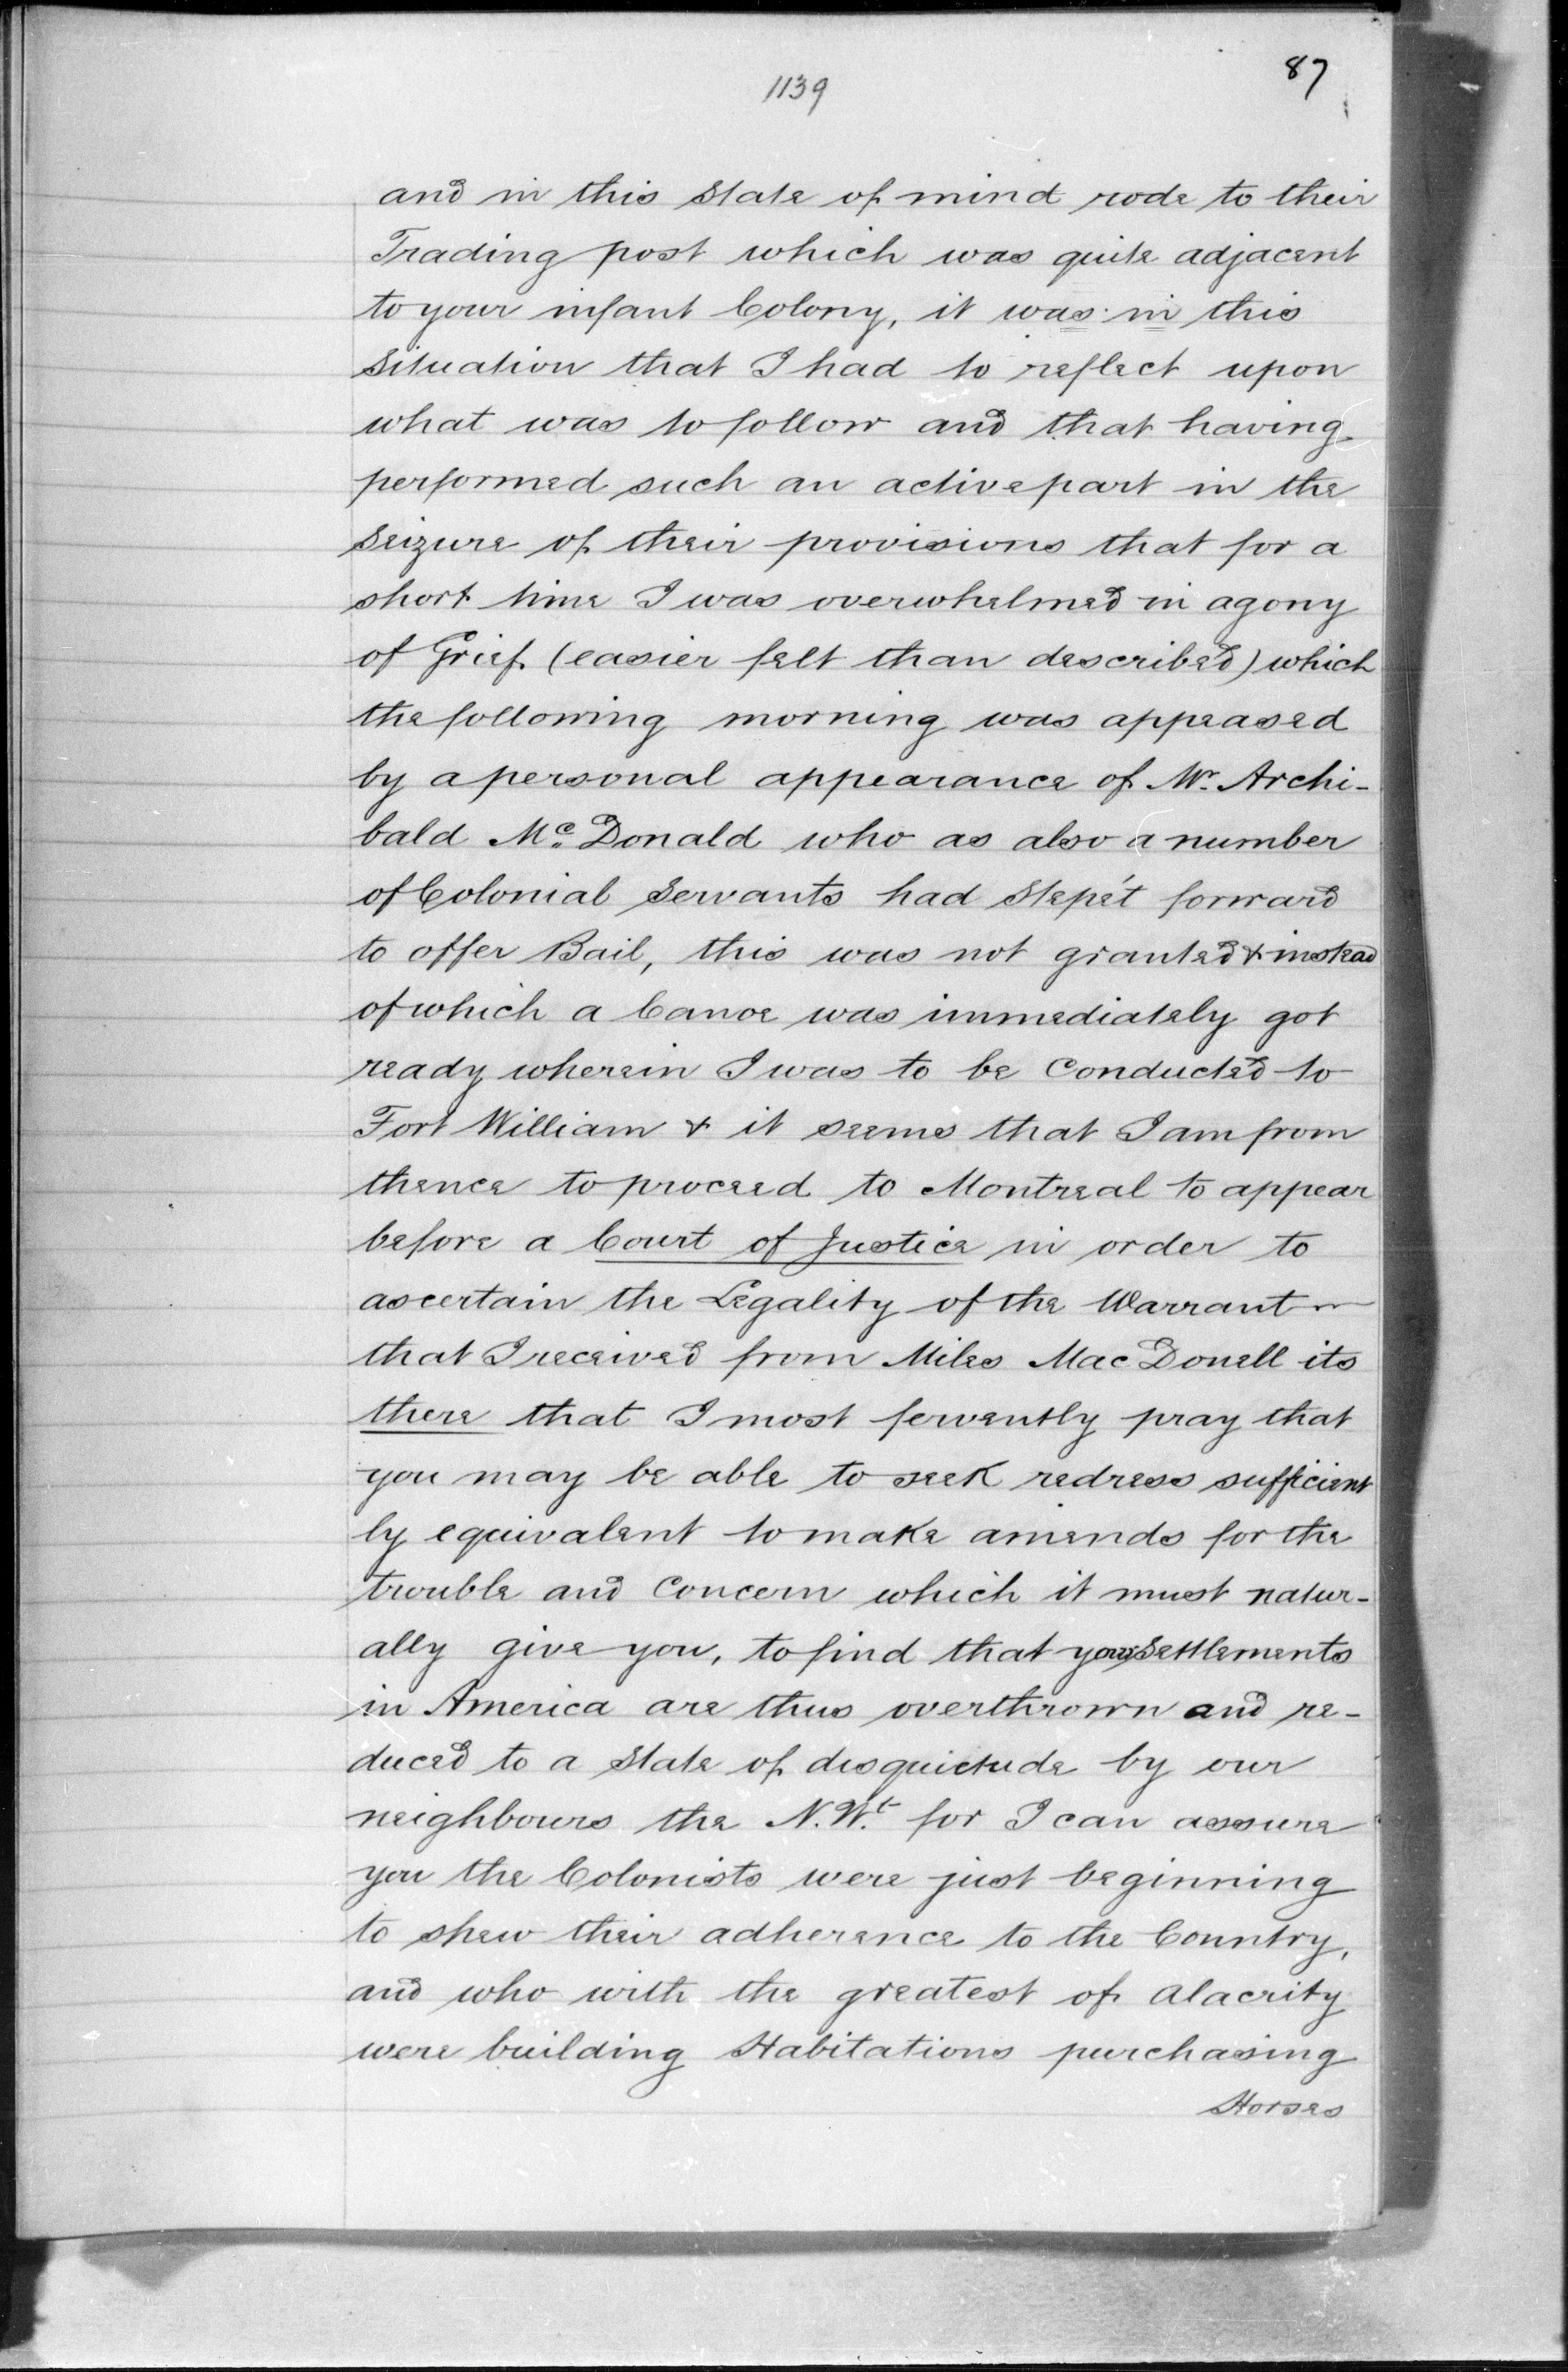 87
1139
and in this state of mind rode to their
Trading post which was quite adjacent
to your infant Colony, it was in this
situation that I had to reflect upon
what was to follow and that having
performed such an active part in the
seizure of their provisions that for a
short time I was overwhelmed in agony
of Grief (easier felt than described) which
the following morning was appeased
by a personal appearance of Mr. Archi-
bald Mc. Donald who as also a number
of Colonial Servants had Step'et forward
to offer Bail, this was not granted & instead
of which a Canoe was immediately got
ready wherein I was to be Conducted to
Fort William & it seems that I am from
thence to proceed to Montreal to appear
before a Court of Justice in order to
ascertain the Legality of the Warrant
that I received from Miles MacDonell its
there that I most fervently pray that
you may be able to seek redress sufficient
ly equivalent to make amends for the
trouble and Concern which it must natur-
ally give you, to find that your Settlements
in America are thus overthrown and re-
duced to a State of disquietude by our
neighbours the N.Wt. for I can assure
you the Colonists were just beginning
to shew their adherence to the Country,
and who with the greatest of alacrity
were building Habitations purchasing
Horses